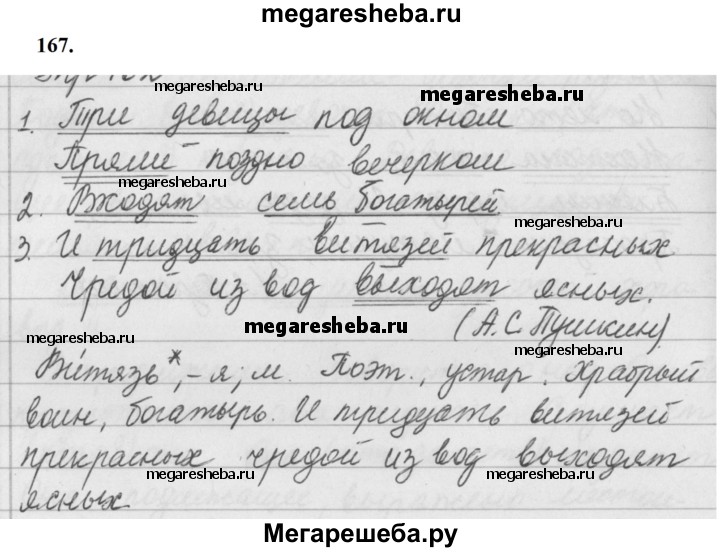 megaresheba.ru
167.
megaresheba.ru
megaresheba.ru
1. Три девицы под окном
Пряли поздно вечерком
megaresheba.ru
2. Входят семь богатырей.
megaresheba.ru
3. И тридцать витязей прекрасных
Чредой из вод выходят ясных.
megaresheba.ru
(А.С. Пушкин)
megaresheba.ru
megaresheba.ru
Ви́тязь*, -я; м. Поэт., устар. Храбрый
воин, богатырь. И тридцать витязей
прекрасных чредой из вод выходят
megaresheba.ru
megaresheba.ru
ясных
Мегарешеба.ру